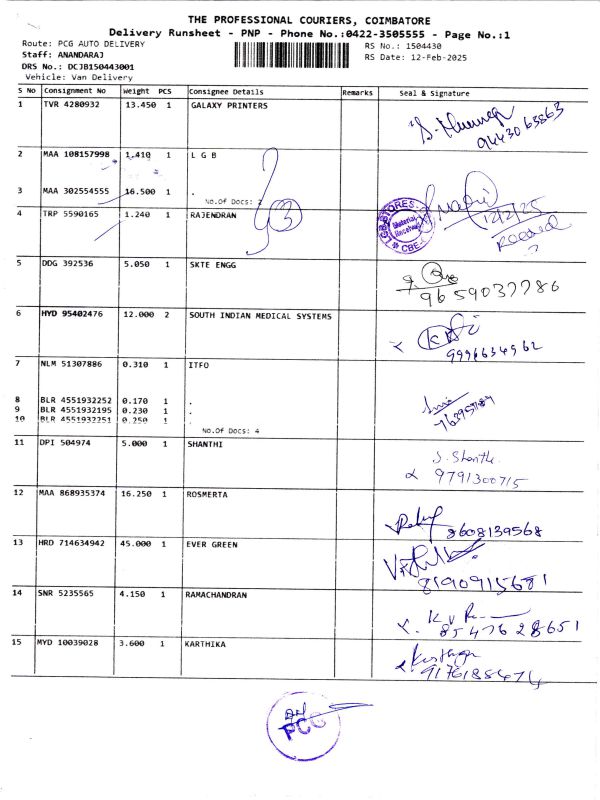 THE PROFESSIONAL COURIERS, COIMBATORE
Delivery Runsheet - PNP - Phone No.:0422-3505555 - Page No.:1
Route: PCG AUTO DELIVERY
RS No.: 1504430
Staff: ANANDARAJ
RS Date: 12-Feb-2025
DRS No.: DCJB150443001
Vehicle: Van Delivery
S No Consignment No Weight PCS Consignee Details Remarks Seal & Signature
1 TVR 4280932 13.450 1 GALAXY PRINTERS
9443063863
2 MAA 108157998 1.410 1 L G B
3 MAA 302554555 16.500 1 .
No.Of Docs: 2
3
4 TRP 5590165 1.240 1 RAJENDRAN
LGB STORES
Material Received
CBE
12/2/25
5 DDG 392536 5.050 1 SKTE ENGG
9659037786
6 HYD 95402476 12.000 2 SOUTH INDIAN MEDICAL SYSTEMS
9996634962
7 NLM 51307886 0.310 1 ITFO
8 BLR 4551932252 0.170 1 .
9 BLR 4551932195 0.230 1 .
10 BLR 4551932251 0.250 1 .
No.Of Docs: 4
11 DPI 504974 5.000 1 SHANTHI
S. Shanthi
9791300715
12 MAA 868935374 16.250 1 ROSMERTA
8608139568
13 HRD 714634942 45.000 1 EVER GREEN
8190915681
14 SNR 5235565 4.150 1 RAMACHANDRAN
8547628651
15 MYD 10039028 3.600 1 KARTHIKA
Karthika
9176188474
PCG